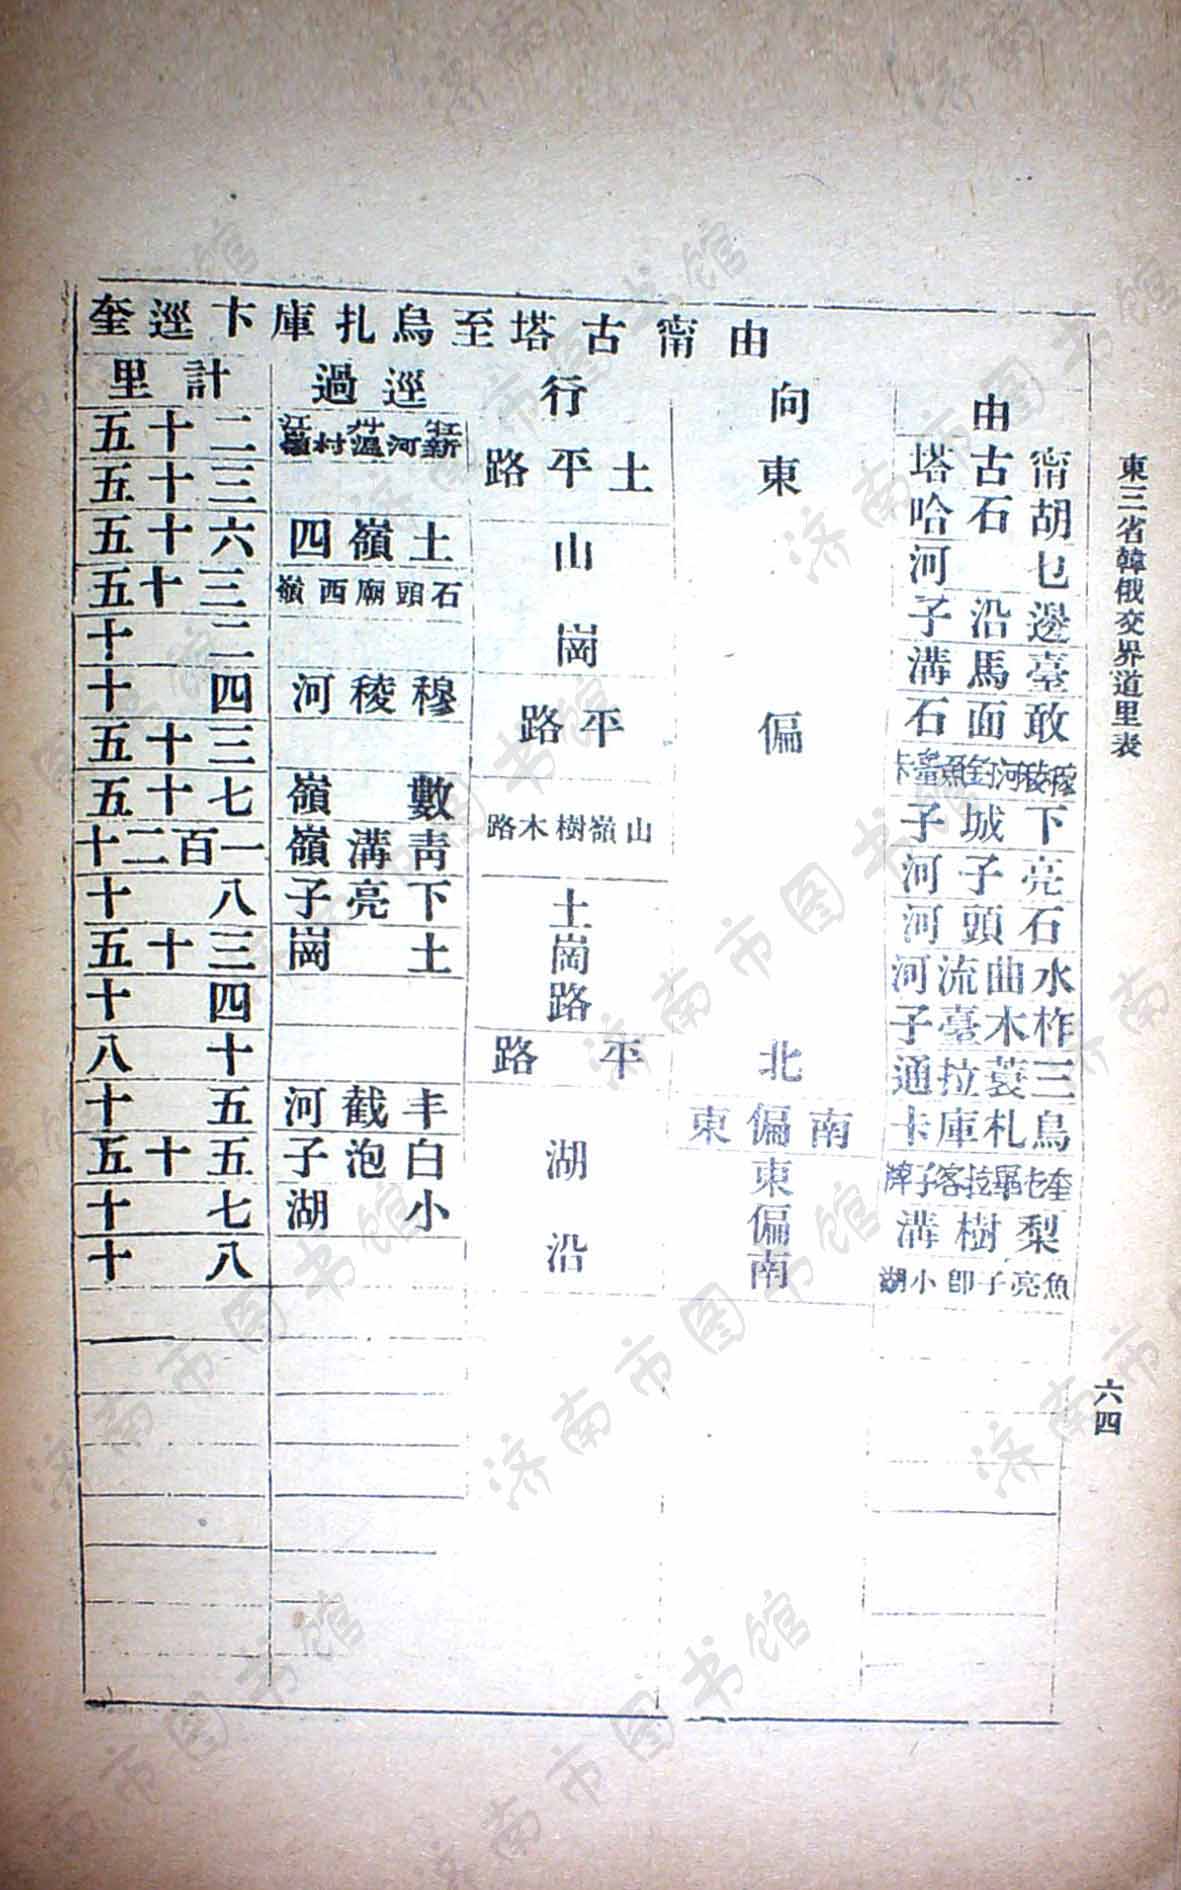 東三省韓俄交界道里表
六四
由甯古塔至烏扎庫卞逕奎
由
甯古塔
胡石哈
乜河
邊沿子
臺馬溝
敢面石
下城子
亮子河
石頭河
水曲流河
柞木臺子
三蓑拉通
烏札庫卡
梨樹溝
魚亮子卽小湖
向
東偏北
南偏東
東偏南
行
土平路
山崗
平路
山嶺樹木路
土崗路
平路
湖沿
逕過
土嶺四
石頭廟西嶺
穆稜河
數嶺
靑溝嶺
下亮子
土崗
丰截河
白泡子
小湖
計里
二十五
三十五
六十五
三十五
二十
四十
三十五
七十五
一百二十
八十
三十五
四十
十八
五十
五十五
七十
八十
济南市图书馆